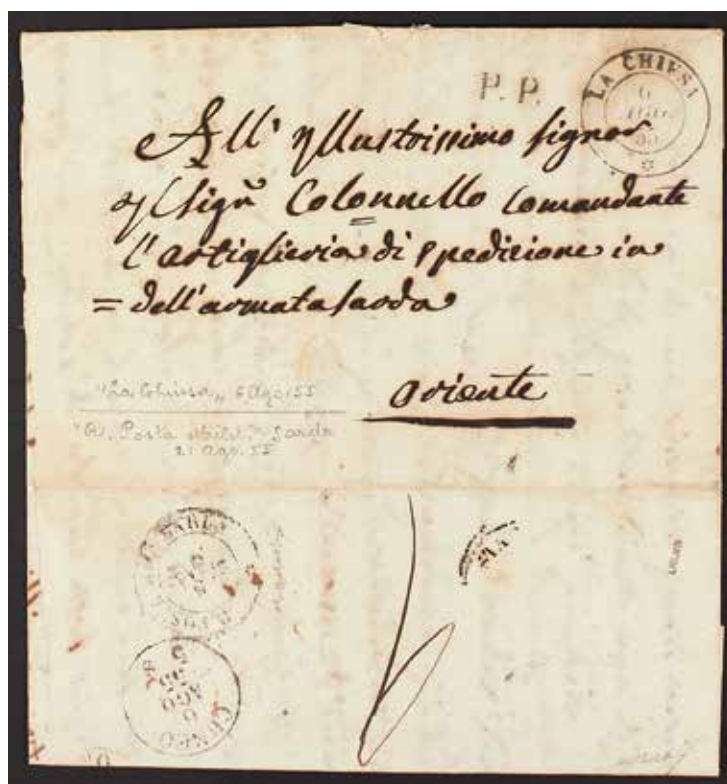 P. P.
LA CHIUSA
6
AGO
55
All' Yllustrissimo Signor
Yl Sigr Colonnello Comandante
l'artiglieria di spedizione in
= dell'armata sarda
oriente
"La Chiusa„ 6 Ago. 55
"R. Posta Milit. Sarda
21 Ago. 55
SARDA
CUNEO
6
AGO
55